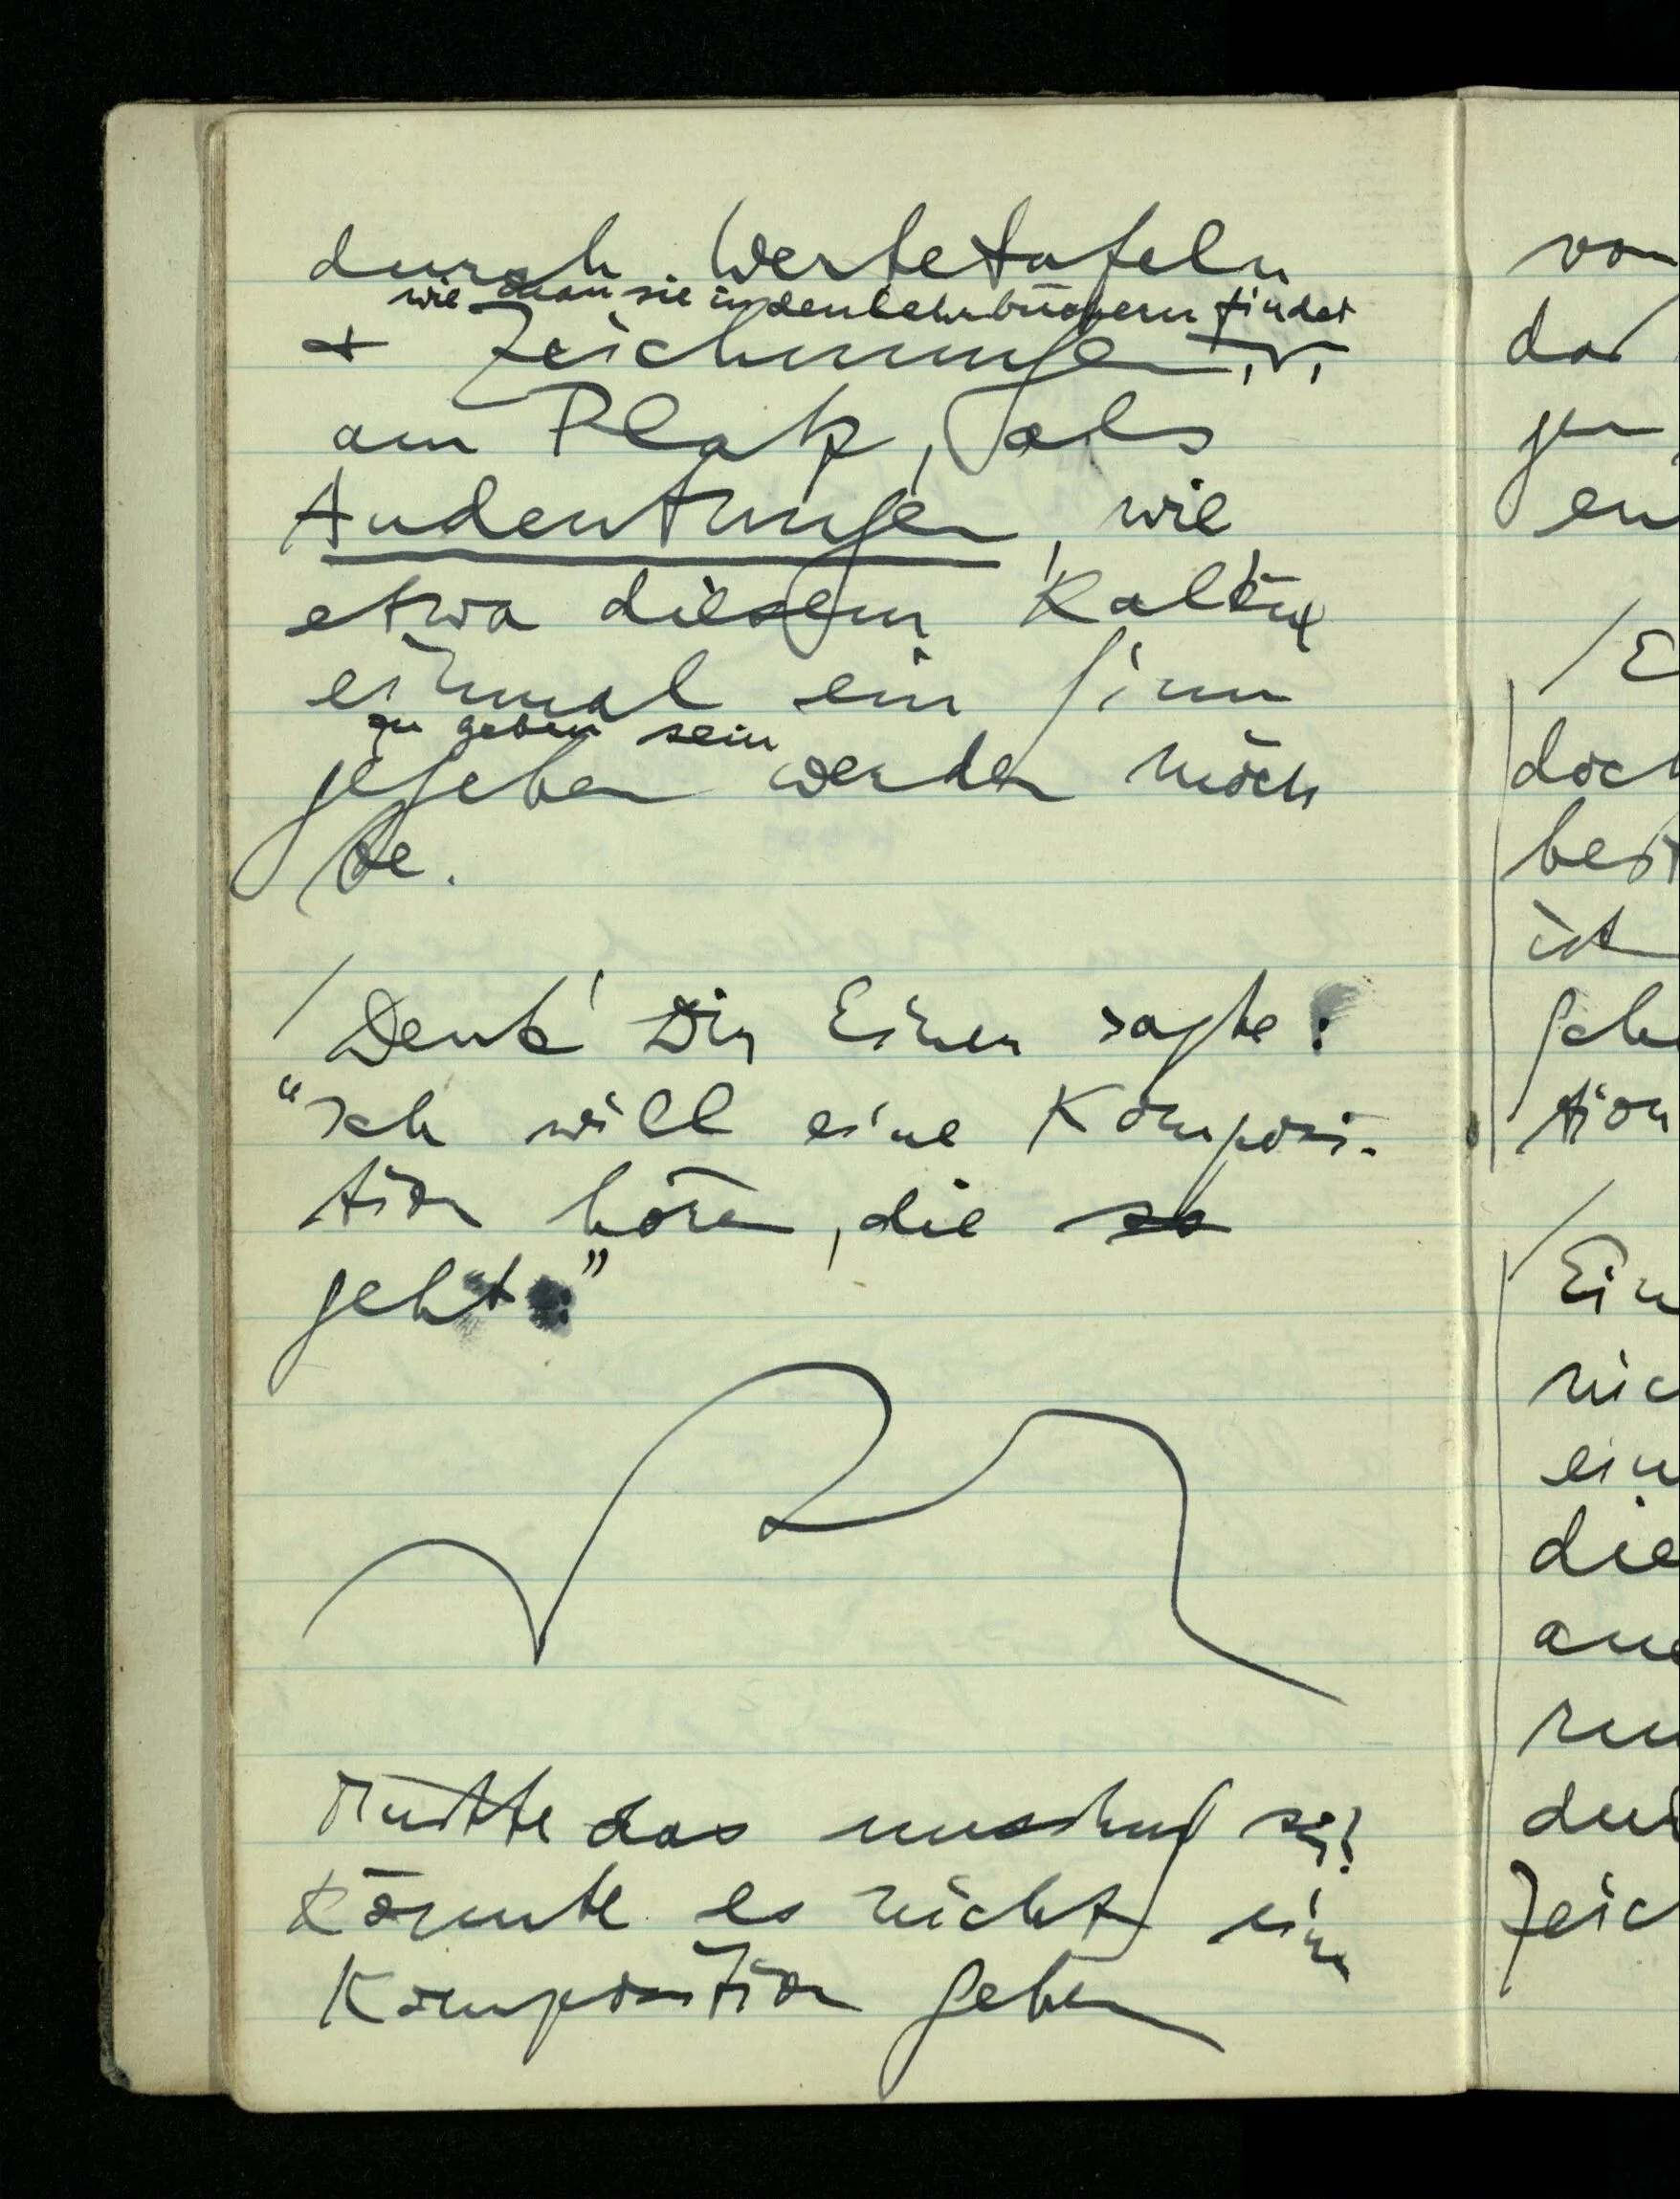 durch Wertetafeln
wie man sie in den Lehrbüchern findet
+ Zeichnungen,
am Platz, als
Andeutungen, wie
etwa diesem Kalkül
einmal ein Sinn
zu geben sein
gegeben werden möch
te.
/ Denk' Dir Einer sagte:
“Ich will eine Komposi-
tion hören, die so
geht:”
Müßte das unsinnig sein?
Könnte es nicht eine
Komposition geben
von
das
en
/ E
doch
best
ist
tion
/ Ein
nic
ein
die
ane
dur
Zeic